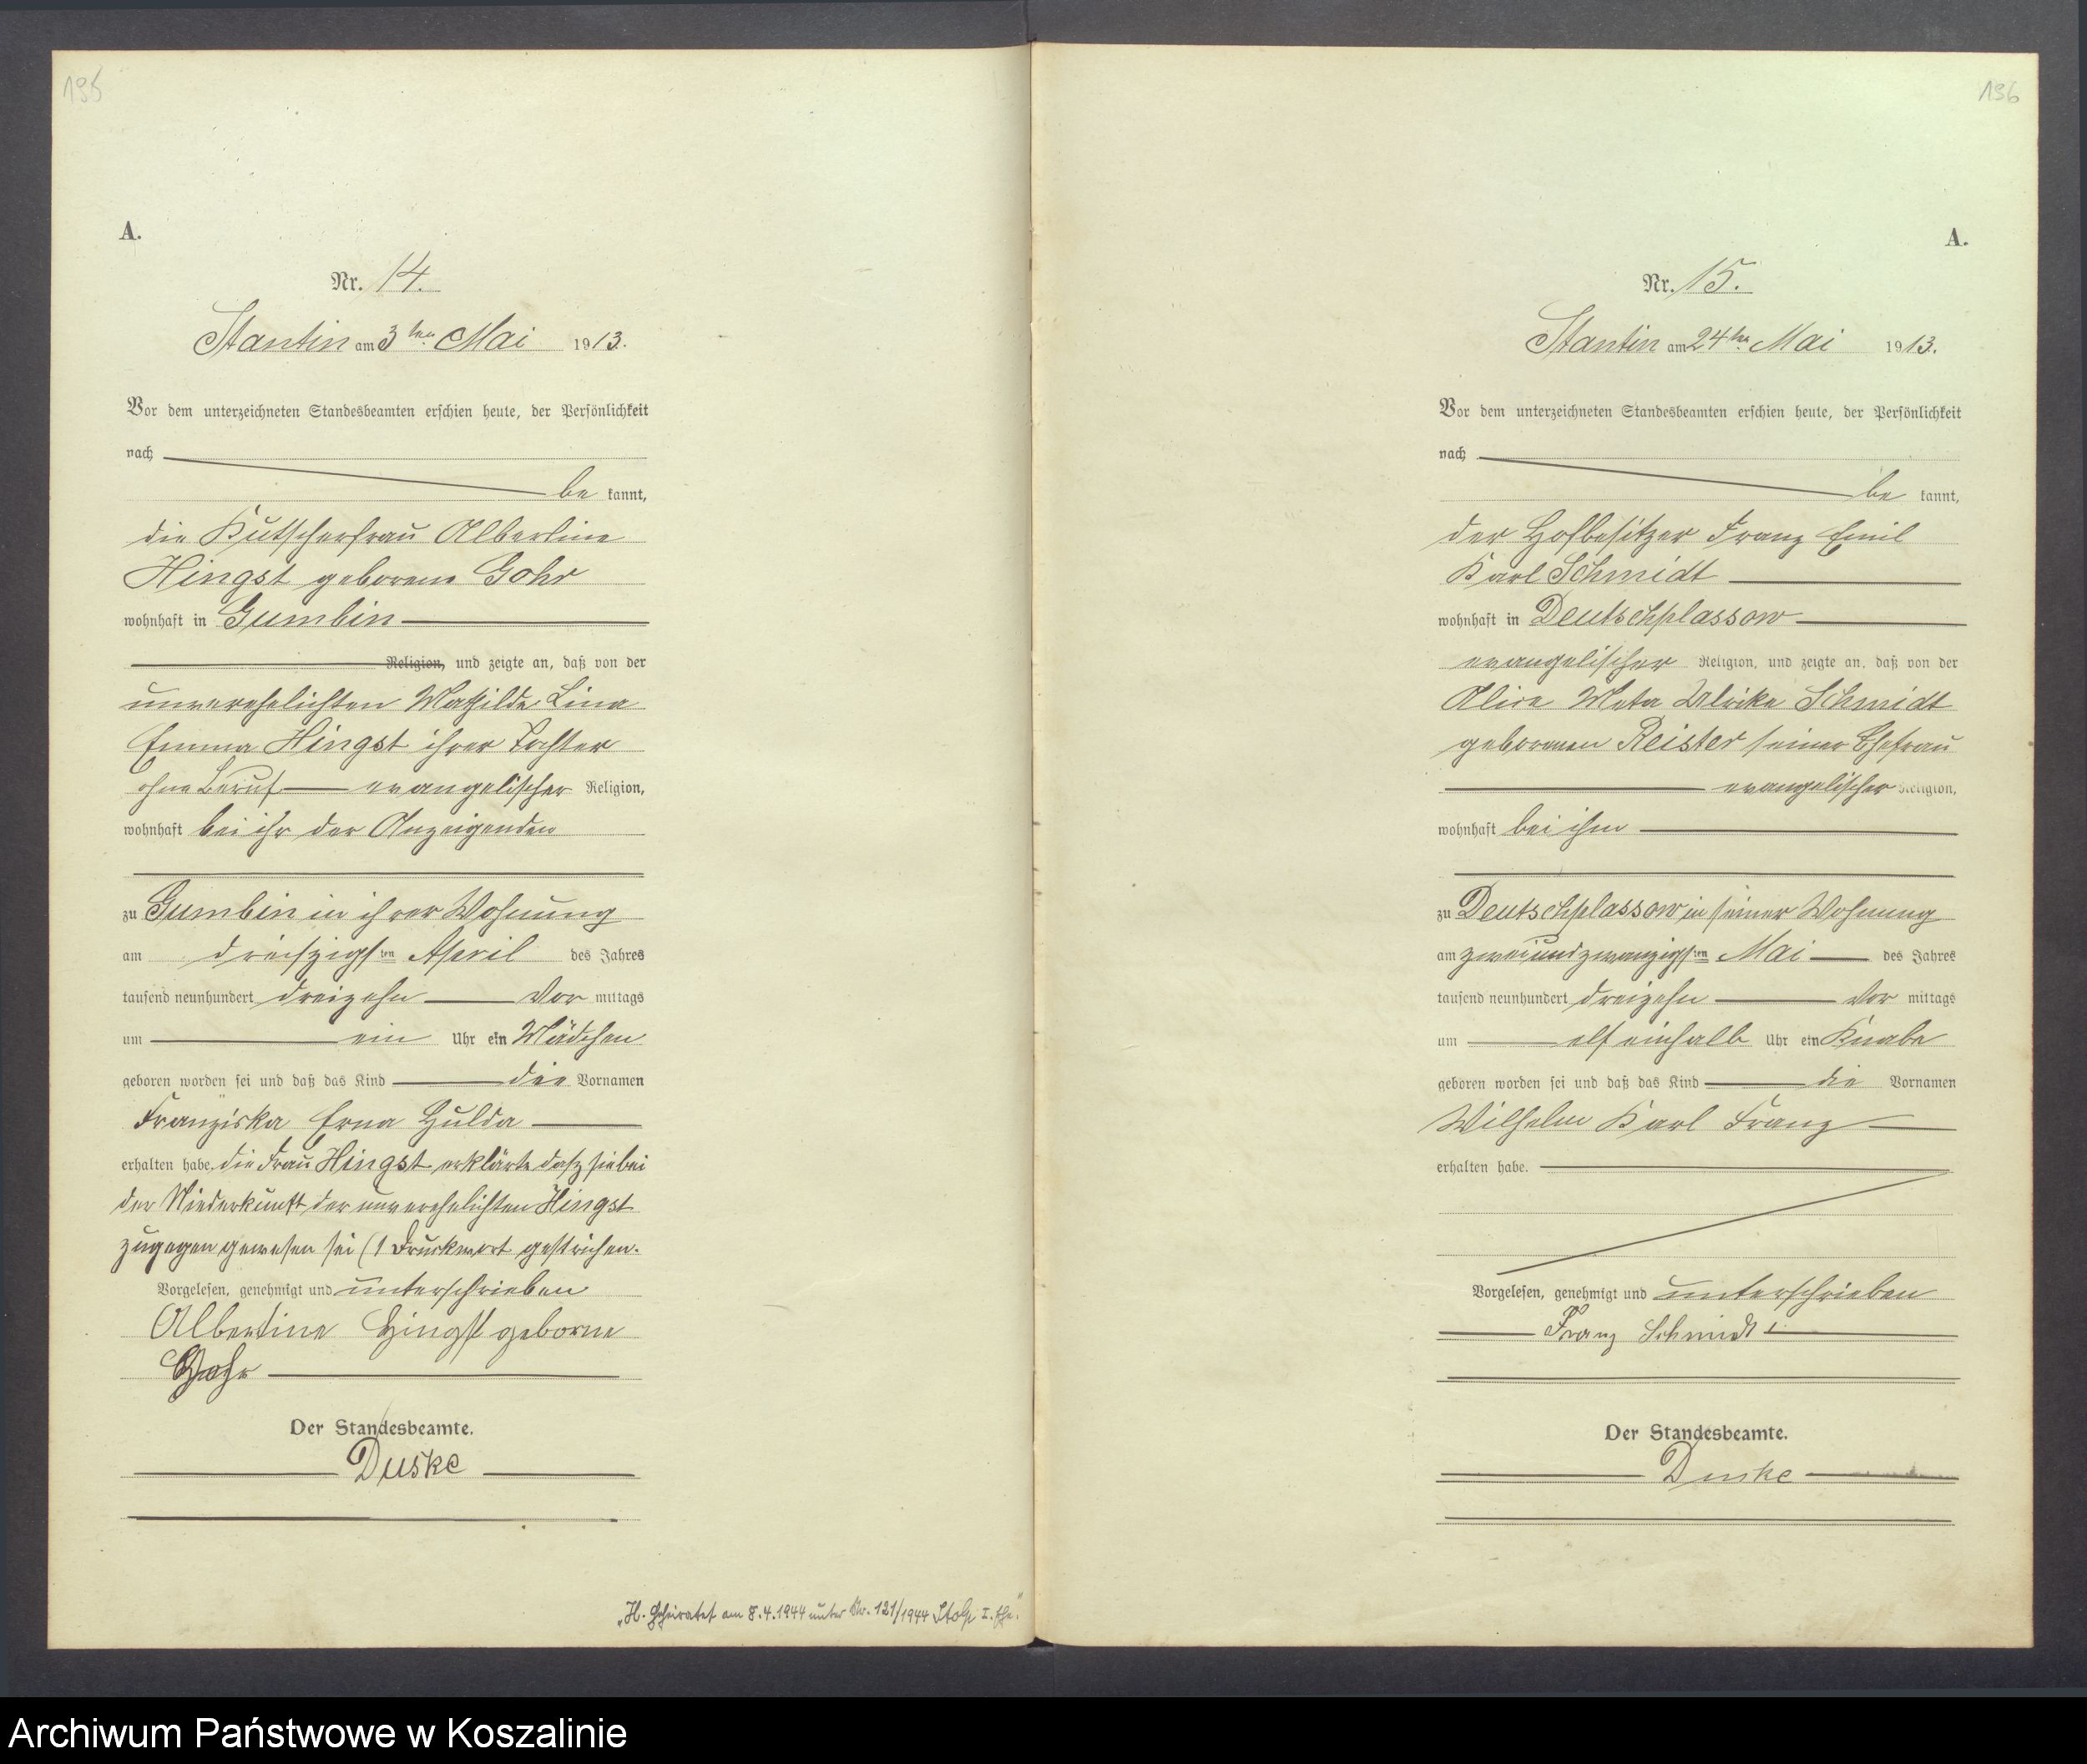 195
A.
Nr. 14.
Stantin am 3ten Mai 1913.
Vor dem unterzeichneten Standesbeamten erschien heute, der Persönlichkeit
nach
be kannt,
die Kutscherfrau Albertine
Hingst geborene Gohr
wohnhaft in Gumbin
Religion, und zeigte an, daß von der
unverehelichten Mathilde Lina
Emma Hingst ihrer Tochter
ohne Beruf evangelischer Religion,
wohnhaft bei ihr der Anzeigenden
zu Gumbin in ihrer Wohnung
am dreiszigsten April des Jahres
tausend neunhundert dreizehn Vor mittags
um ein Uhr ein Mädchen
geboren worden sei und daß das Kind die Vornamen
Franziska Erna Hulda
erhalten habe. die Frau Hingst erklärte dasz sie bei
der Niederkunft der unverehelichten Hingst
zugegen gewesen sei (1 Druckwort gestrichen.
Vorgelesen, genehmigt und unterschrieben
Albertine Hingst geborne
Gohr
Der Standesbeamte.
Duske
„H. Geheiratet am 8.4.1944 unter Nr. 121/1944 Stolp I. Ehe."
196
A.
Nr. 15.
Stantin am 24ten Mai 1913.
Vor dem unterzeichneten Standesbeamten erschien heute, der Persönlichkeit
nach
be kannt,
der Hofbesitzer Franz Emil
Karl Schmidt
wohnhaft in Deutschplassow
evangelischer Religion, und zeigte an, daß von der
Alice Meta Ulrike Schmidt
geborenen Reister seiner Ehefrau
evangelischer Religion,
wohnhaft bei ihm
zu Deutschplassow in seiner Wohnung
am zweiundzwanzigsten Mai des Jahres
tausend neunhundert dreizehn Vor mittags
um elf einhalb Uhr ein Knabe
geboren worden sei und daß das Kind die Vornamen
Wilhelm Karl Franz
erhalten habe.
Vorgelesen, genehmigt und unterschrieben
Franz Schmidt
Der Standesbeamte.
Duske
Archiwum Państwowe w Koszalinie